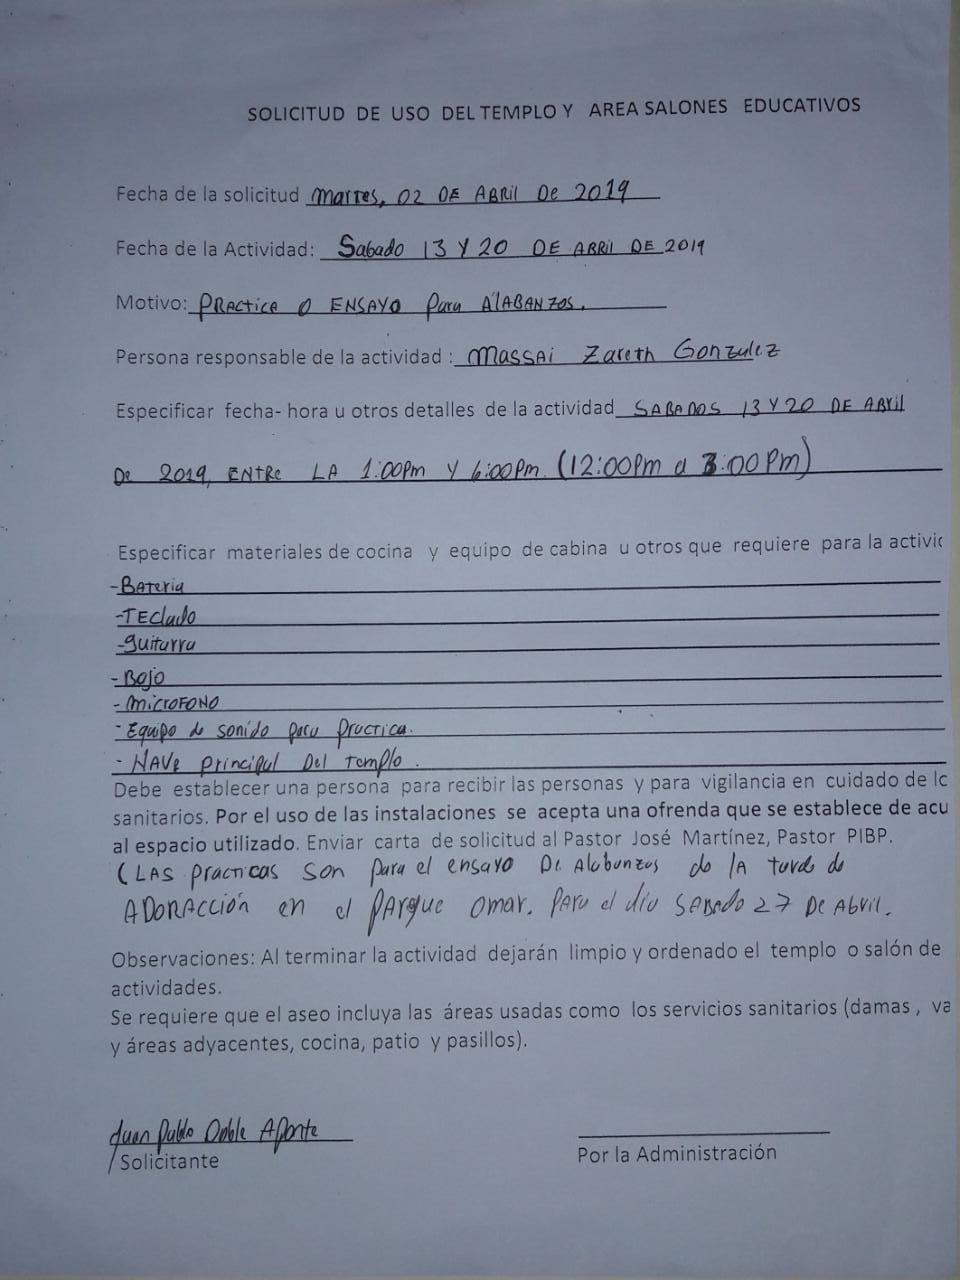 SOLICITUD DE USO DEL TEMPLO Y AREA SALONES EDUCATIVOS
Fecha de la solicitud Martes, 02 DE ABRil De 2019
Fecha de la Actividad: Sabado 13 Y 20 DE ABRil DE 2019
Motivo: PRActicA O ENSAYO Para AlABANZOS.
Persona responsable de la actividad : Massai Zareth Gonzalez
Especificar fecha- hora u otros detalles de la actividad SABADOS 13 Y 20 DE ABRil
De 2019, ENTRe LA 1:00Pm Y 6:00Pm. (12:00Pm a 3:00Pm)
Especificar materiales de cocina y equipo de cabina u otros que requiere para la activic
-BAteria
-TEclado
-guitarra
-Bajo
-MicroFONO
-Equipo de sonido para practica.
-NAVe principal Del Templo.
Debe establecer una persona para recibir las personas y para vigilancia en cuidado de lc
sanitarios. Por el uso de las instalaciones se acepta una ofrenda que se establece de acu
al espacio utilizado. Enviar carta de solicitud al Pastor José Martínez, Pastor PIBP.
(LAS practicas son para el ensayo De Alabanzas de lA tarde de
ADORACCIÓN en el pArque omar. PARA el día SABADO 27 De Abril.
Observaciones: Al terminar la actividad dejarán limpio y ordenado el templo o salón de
actividades.
Se requiere que el aseo incluya las áreas usadas como los servicios sanitarios (damas , va
y áreas adyacentes, cocina, patio y pasillos).
Juan Pablo Doble Aponte
Solicitante
Por la Administración